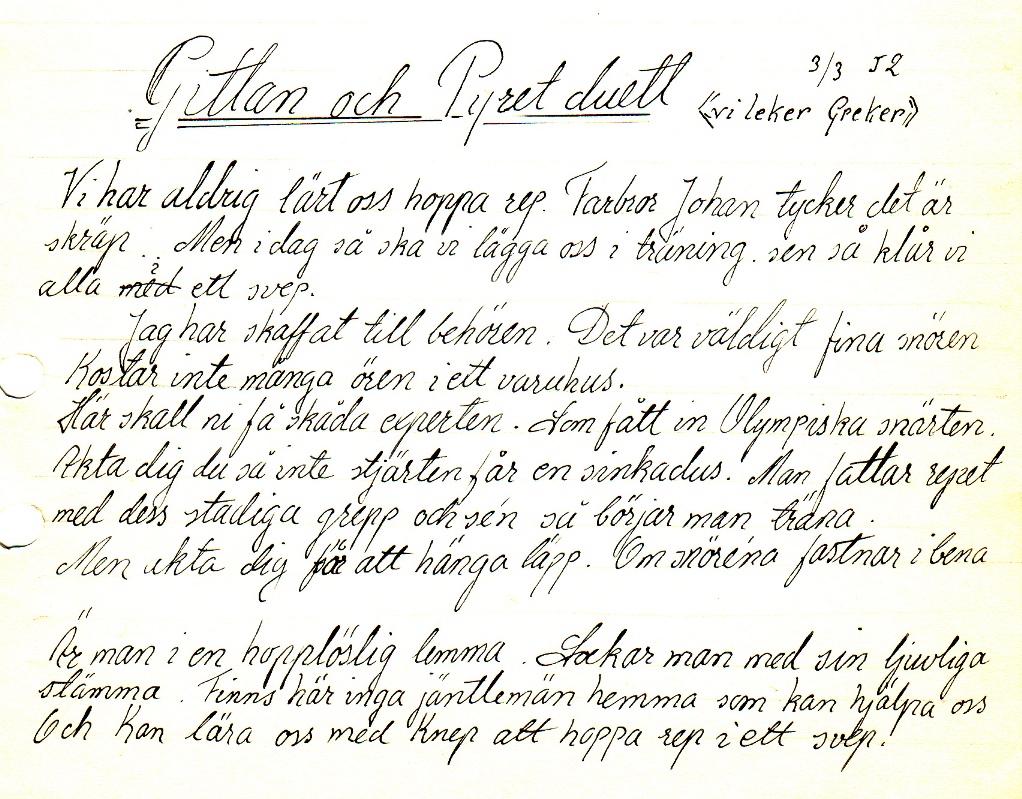 Gittan och Pyret duett
3/3 52
"vi leker Greker"
Vi har aldrig lärt oss hoppa rep. Farbror Johan tycker det är
skräp. Men i dag så ska vi lägga oss i träning. sen så klår vi
alla med i ett svep.
Jag har skaffat till behören. Det var väldigt fina snören
Kostar inte många ören i ett varuhus.
Här skall ni få skåda experten. Som fått in Olympiska snärten.
Akta dig du så inte stjärten får en sinkadus. Man fattar repet
med dess stadiga grepp och sén så börjar man träna.
Men akta dig för att hänga läpp. Om snöréna fastnar i bena
Är man i en hopplöslig lemma. Lockar man med sin ljuvliga
stämma. Finns här inga jäntlemän hemma som kan hjälpa oss
Och Kan lära oss med Knep att hoppa rep i ett svep.